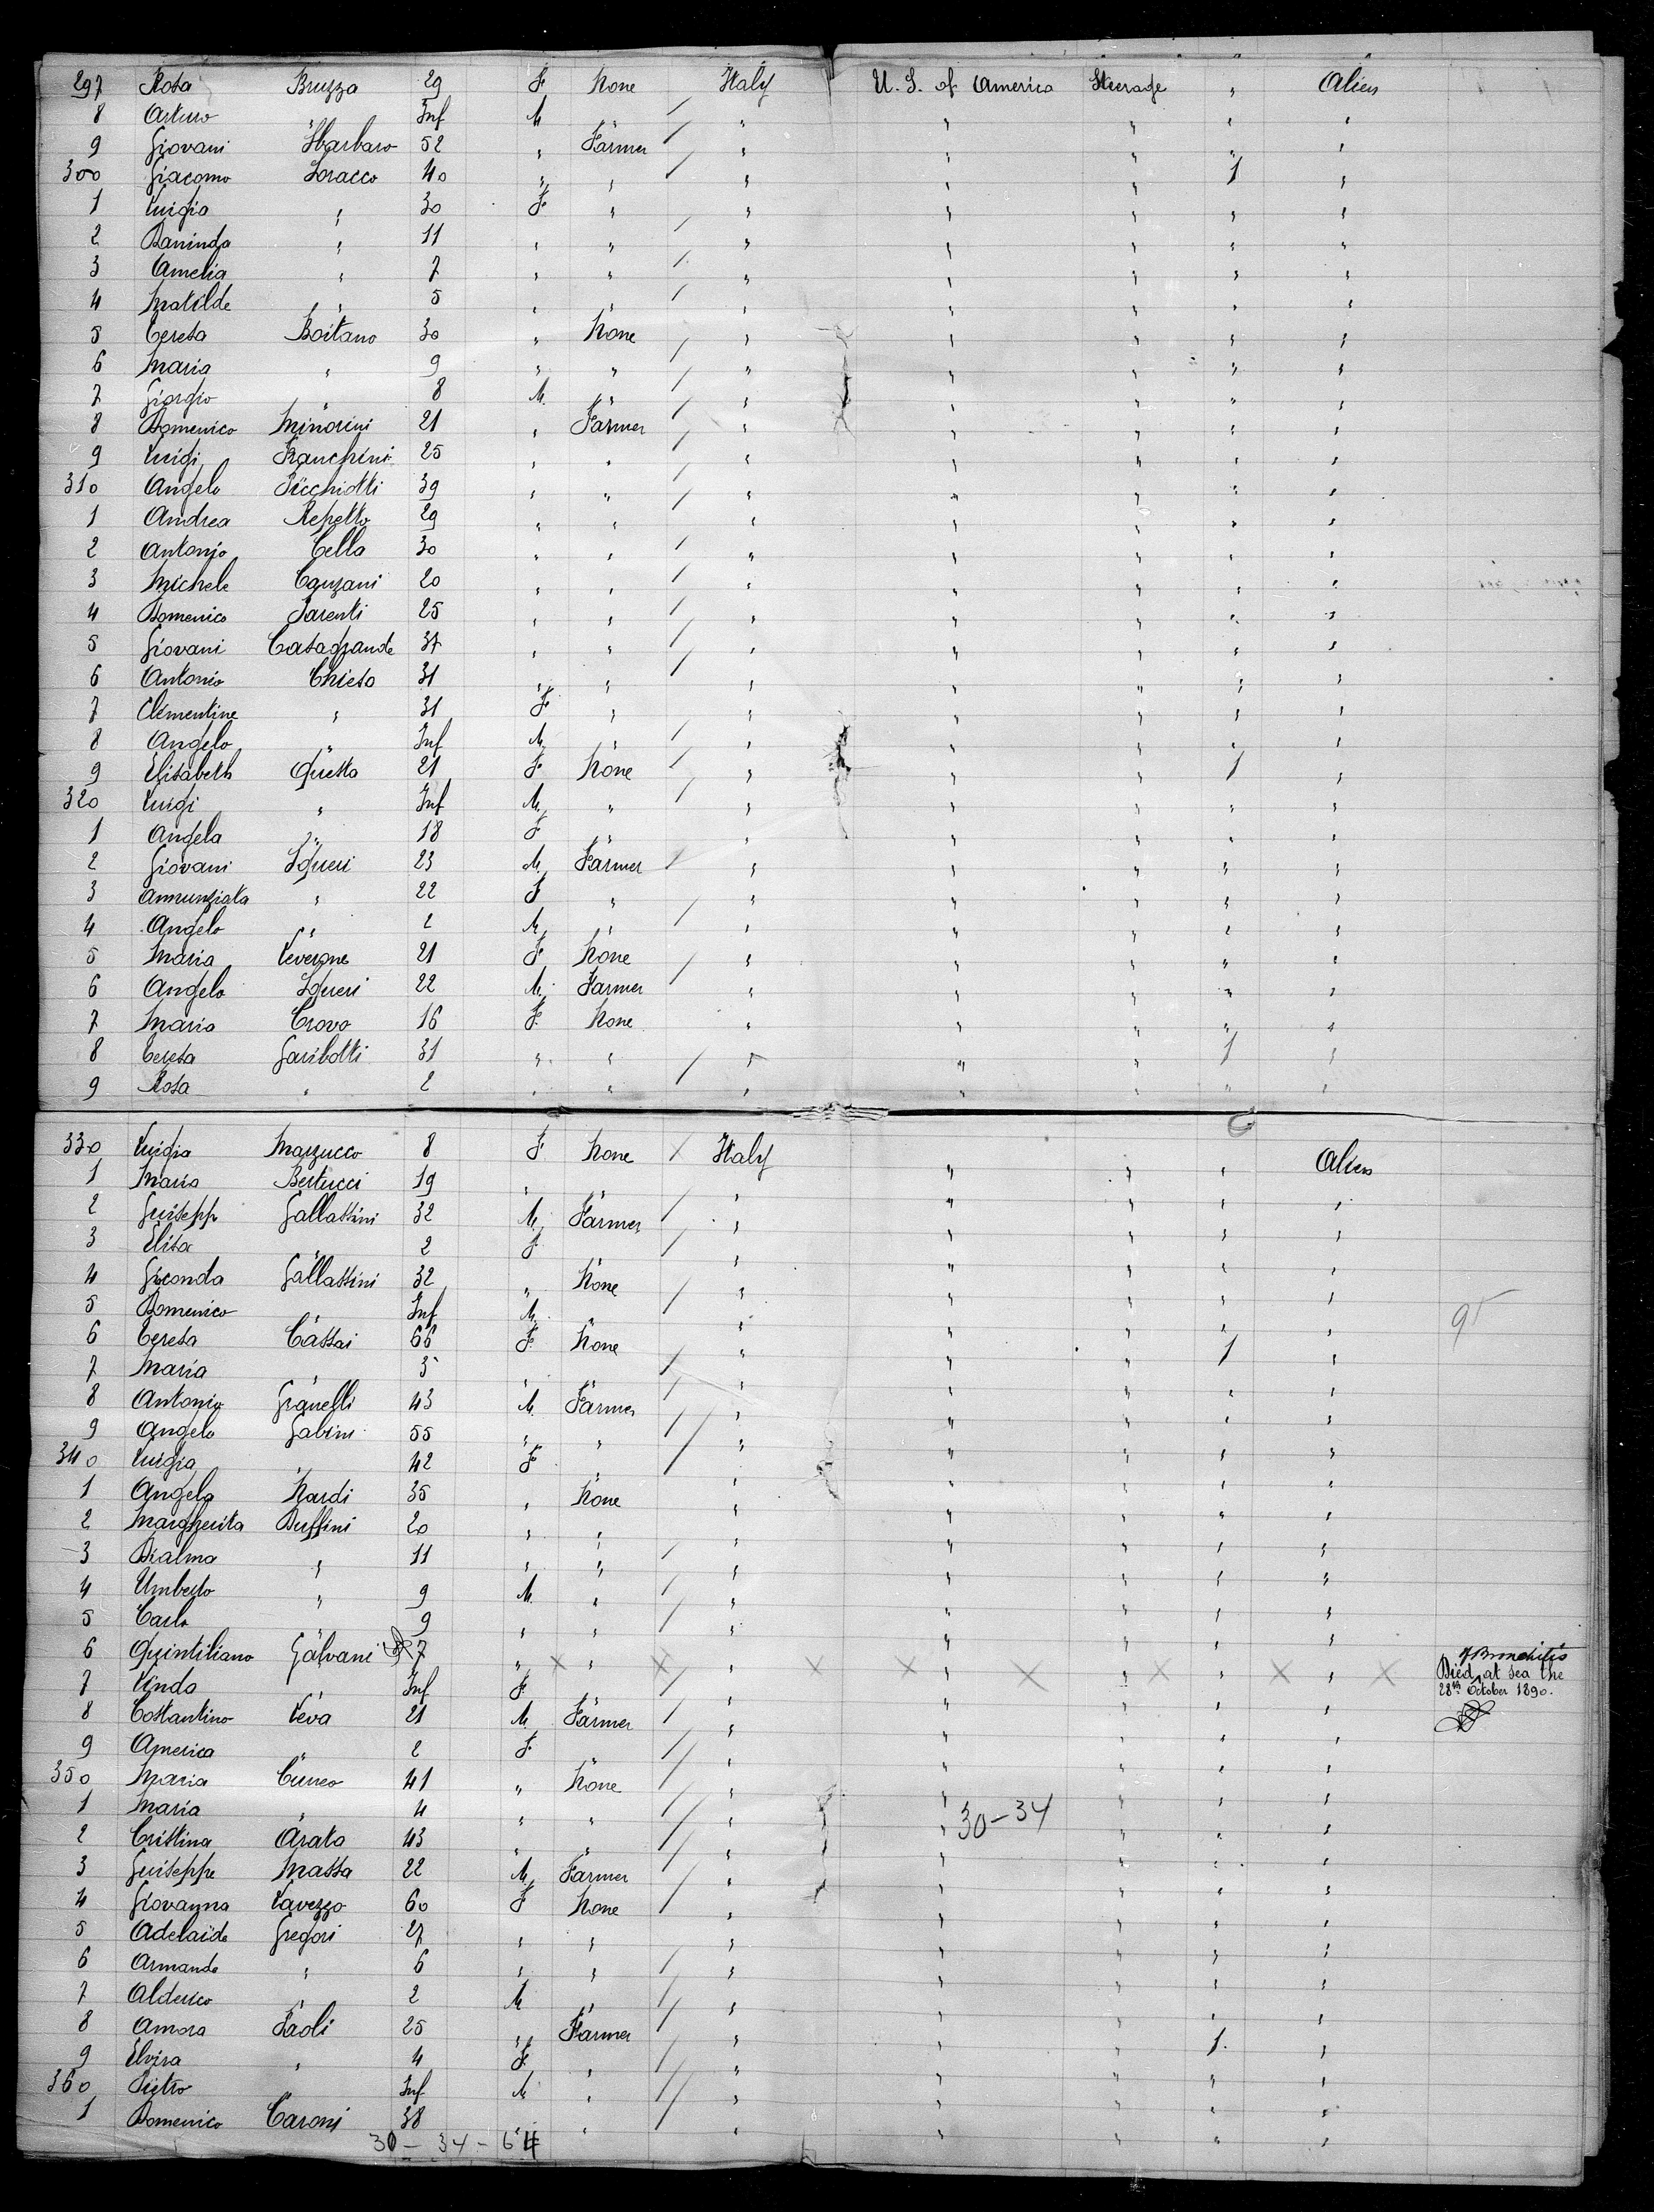 297 Rosa Bruzza 29 F. None / Italy U. S. of America Steerage " Alien
8 Arturo " Inf M " / " " " " "
9 Giovani Sbarbaro 52 " Farmer / " " " " "
300 Giacomo Loracco 40 " " / " " " 1 "
1 Luigia " 30 F. " / " " " " "
2 " 11 " " / " " " " "
3 Amelia " 7 " " / " " " " "
4 Matilde " 5 " " / " " " " "
5 Teresa Boitano 30 " None " " " " "
6 Maria " 9 " " / " " " " "
7 Giorgio " 8 M. " / " " " " "
8 Domenico Minorini 21 " Farmer / " " " " "
9 Luigi Franchini 25 " " / " " " " "
310 Angelo Picchiotti 39 " " / " " " " "
1 Andrea Repetto 29 " " / " " " " "
2 Antonio Cella 30 " " / " " " " "
3 Michele Canzani 20 " " / " " " " "
4 Domenico Parenti 25 " " / " " " " "
5 Giovani Casagrande 37 " " / " " " " "
6 Antonio Chiesa 31 " " / " " " " "
7 Clementine " 31 F. " " " " " "
8 Angelo " Inf M. " / " " " " "
9 Elisabeth Questa 21 F None / " " " 1 "
320 Luigi " Inf M. " / " " " " "
1 Angela " 18 F " " " " " "
2 Giovani Sgueri 23 M. Farmer / " " " " "
3 Annunziata " 22 F " " " " " "
4 Angelo " 2 M. " / " " " " "
5 Maria Leverone 21 F None / " " " " "
6 Angelo Sgueri 22 M. Farmer " " " " "
7 Maria Crovo 16 F. None " " " " "
8 Teresa Garibotti 31 " " / " " " 1 "
9 Rosa " 2 " " / " " " " "
330 Luigia Mazzucco 8 F. None / Italy " " " Alien
1 Maria Bertucci 19 " " / " " " " "
2 Guisepp Gallassini 32 M. Farmer / " " " " "
3 Elisa " 2 F. " / " " " " "
4 Gioconda Gallassini 32 " None / " " " " "
5 Domenico " Inf M. " / " " " " "
6 Teresa Cassai 66 F. None " " " 1 "
7 Maria " 5 " " / " " " " "
8 Antonio Granelli 43 M. Farmer / " " " " "
9 Angelo Gabini 55 " " / " " " " "
340 Luigia " 42 F " / " " " " "
1 Angela Nardi 35 " None " " " " "
2 Margherita Buffini 20 " " " " " " "
3 Dialma " 11 " " / " " " " "
4 Umberto " 9 M. " / " " " " "
5 Carlo " 9 " " / " " " " "
6 Quintiliano Galvani 7 " X " X " X X X X X X of Bronchitis
Died at sea the
28th October 1890.
7 Linda " Inf F. " / " " " " "
8 Costantino Leva 21 M. Farmer / " " " " "
9 America " 2 F. " / " " " " "
350 Maria Cuneo 41 " None / " " " " "
1 Maria " 4 " " / " " " " "
30-34
2 Cristina Arata 43 " " / " " " " "
3 Guiseppe Massa 22 M. Farmer / " " " " "
4 Giovanna Lavezzo 60 F None / " " " " "
5 Adelaide Gregori 27 " " " " " " "
6 Armando " 6 " " / " " " " "
7 Alderico " 2 M " / " " " " "
8 Amora Paoli 25 " Farmer / " " " 1. "
9 Elvira " 4 F. " / " " " " "
360 Pietro " Inf M " / " " " " "
1 Domenico Caroni 38 " " / " " " " "
30-34-64